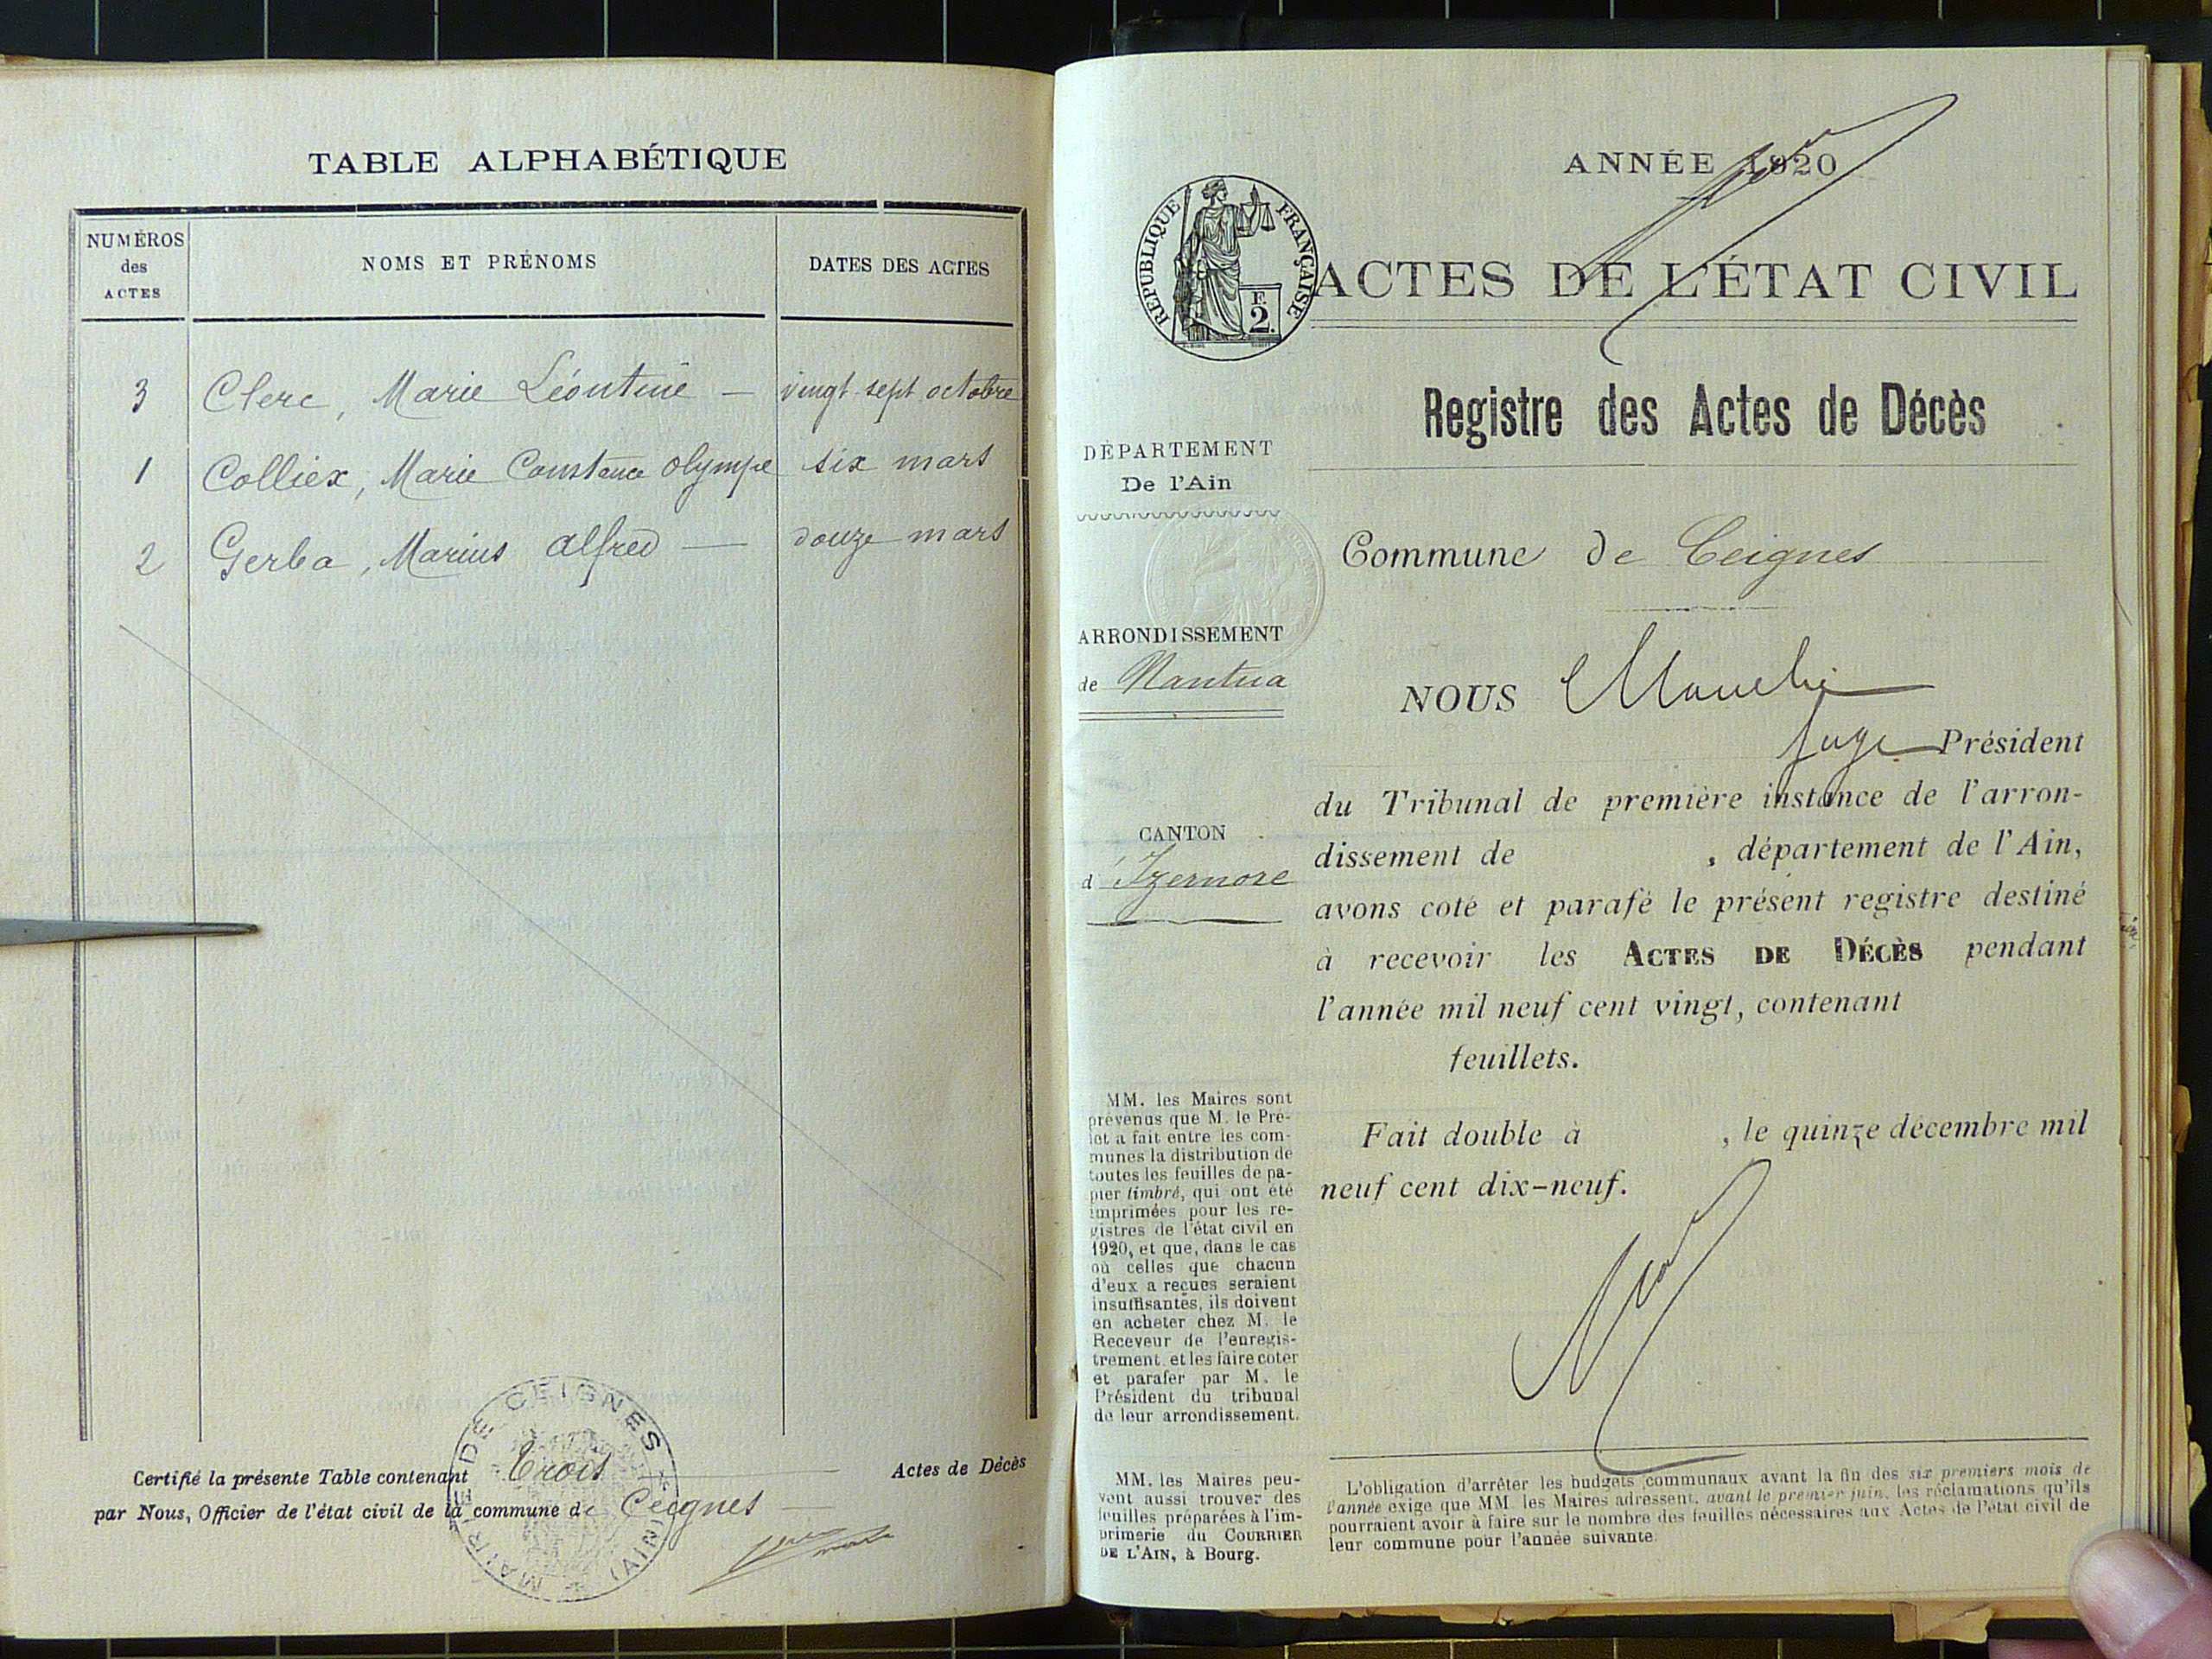 TABLE ALPHABÉTIQUE
NUMÉROS
des
ACTES
NOMS ET PRÉNOMS
DATES DES ACTES
3 Clerc, Marie Léontine — vingt sept octobre
1 Colliex, Marie Constance Olympe six mars
2 Gerba, Marius Alfred — douze mars
Certifié la présente Table contenant Trois Actes de Décès
par Nous, Officier de l'état civil de la commune de Ceignes
MAIRIE DE CEIGNES
(AIN)
ANNÉE 1920
RÉPUBLIQUE FRANÇAISE
F.
2.
ACTES DE L'ÉTAT CIVIL
Registre des Actes de Décès
DÉPARTEMENT
De l'Ain
Commune de Ceignes
ARRONDISSEMENT
de Nantua
CANTON
d'Izernore
MM. les Maires sont
prévenus que M. le Pré-
fet a fait entre les com-
munes la distribution de
toutes les feuilles de pa-
pier timbré, qui ont été
imprimées pour les re-
gistres de l'état civil en
1920, et que, dans le cas
où celles que chacun
d'eux a reçues seraient
insuffisantes, ils doivent
en acheter chez M. le
Receveur de l'enregis-
trement et les faire coter
et parafer par M. le
Président du tribunal
de leur arrondissement.
MM. les Maires peu-
vent aussi trouver des
feuilles préparées à l'im-
primerie du COURRIER
DE L'AIN, à Bourg.
NOUS
Juge Président
du Tribunal de première instance de l'arron-
dissement de , département de l'Ain,
avons coté et parafé le présent registre destiné
à recevoir les ACTES DE DÉCÈS pendant
l'année mil neuf cent vingt, contenant
feuillets.
Fait double à , le quinze décembre mil
neuf cent dix-neuf.
L'obligation d'arrêter les budgets communaux avant la fin des six premiers mois de
l'année exige que MM. les Maires adressent, avant le premier juin, les réclamations qu'ils
pourraient avoir à faire sur le nombre des feuilles nécessaires aux Actes de l'état civil de
leur commune pour l'année suivante.